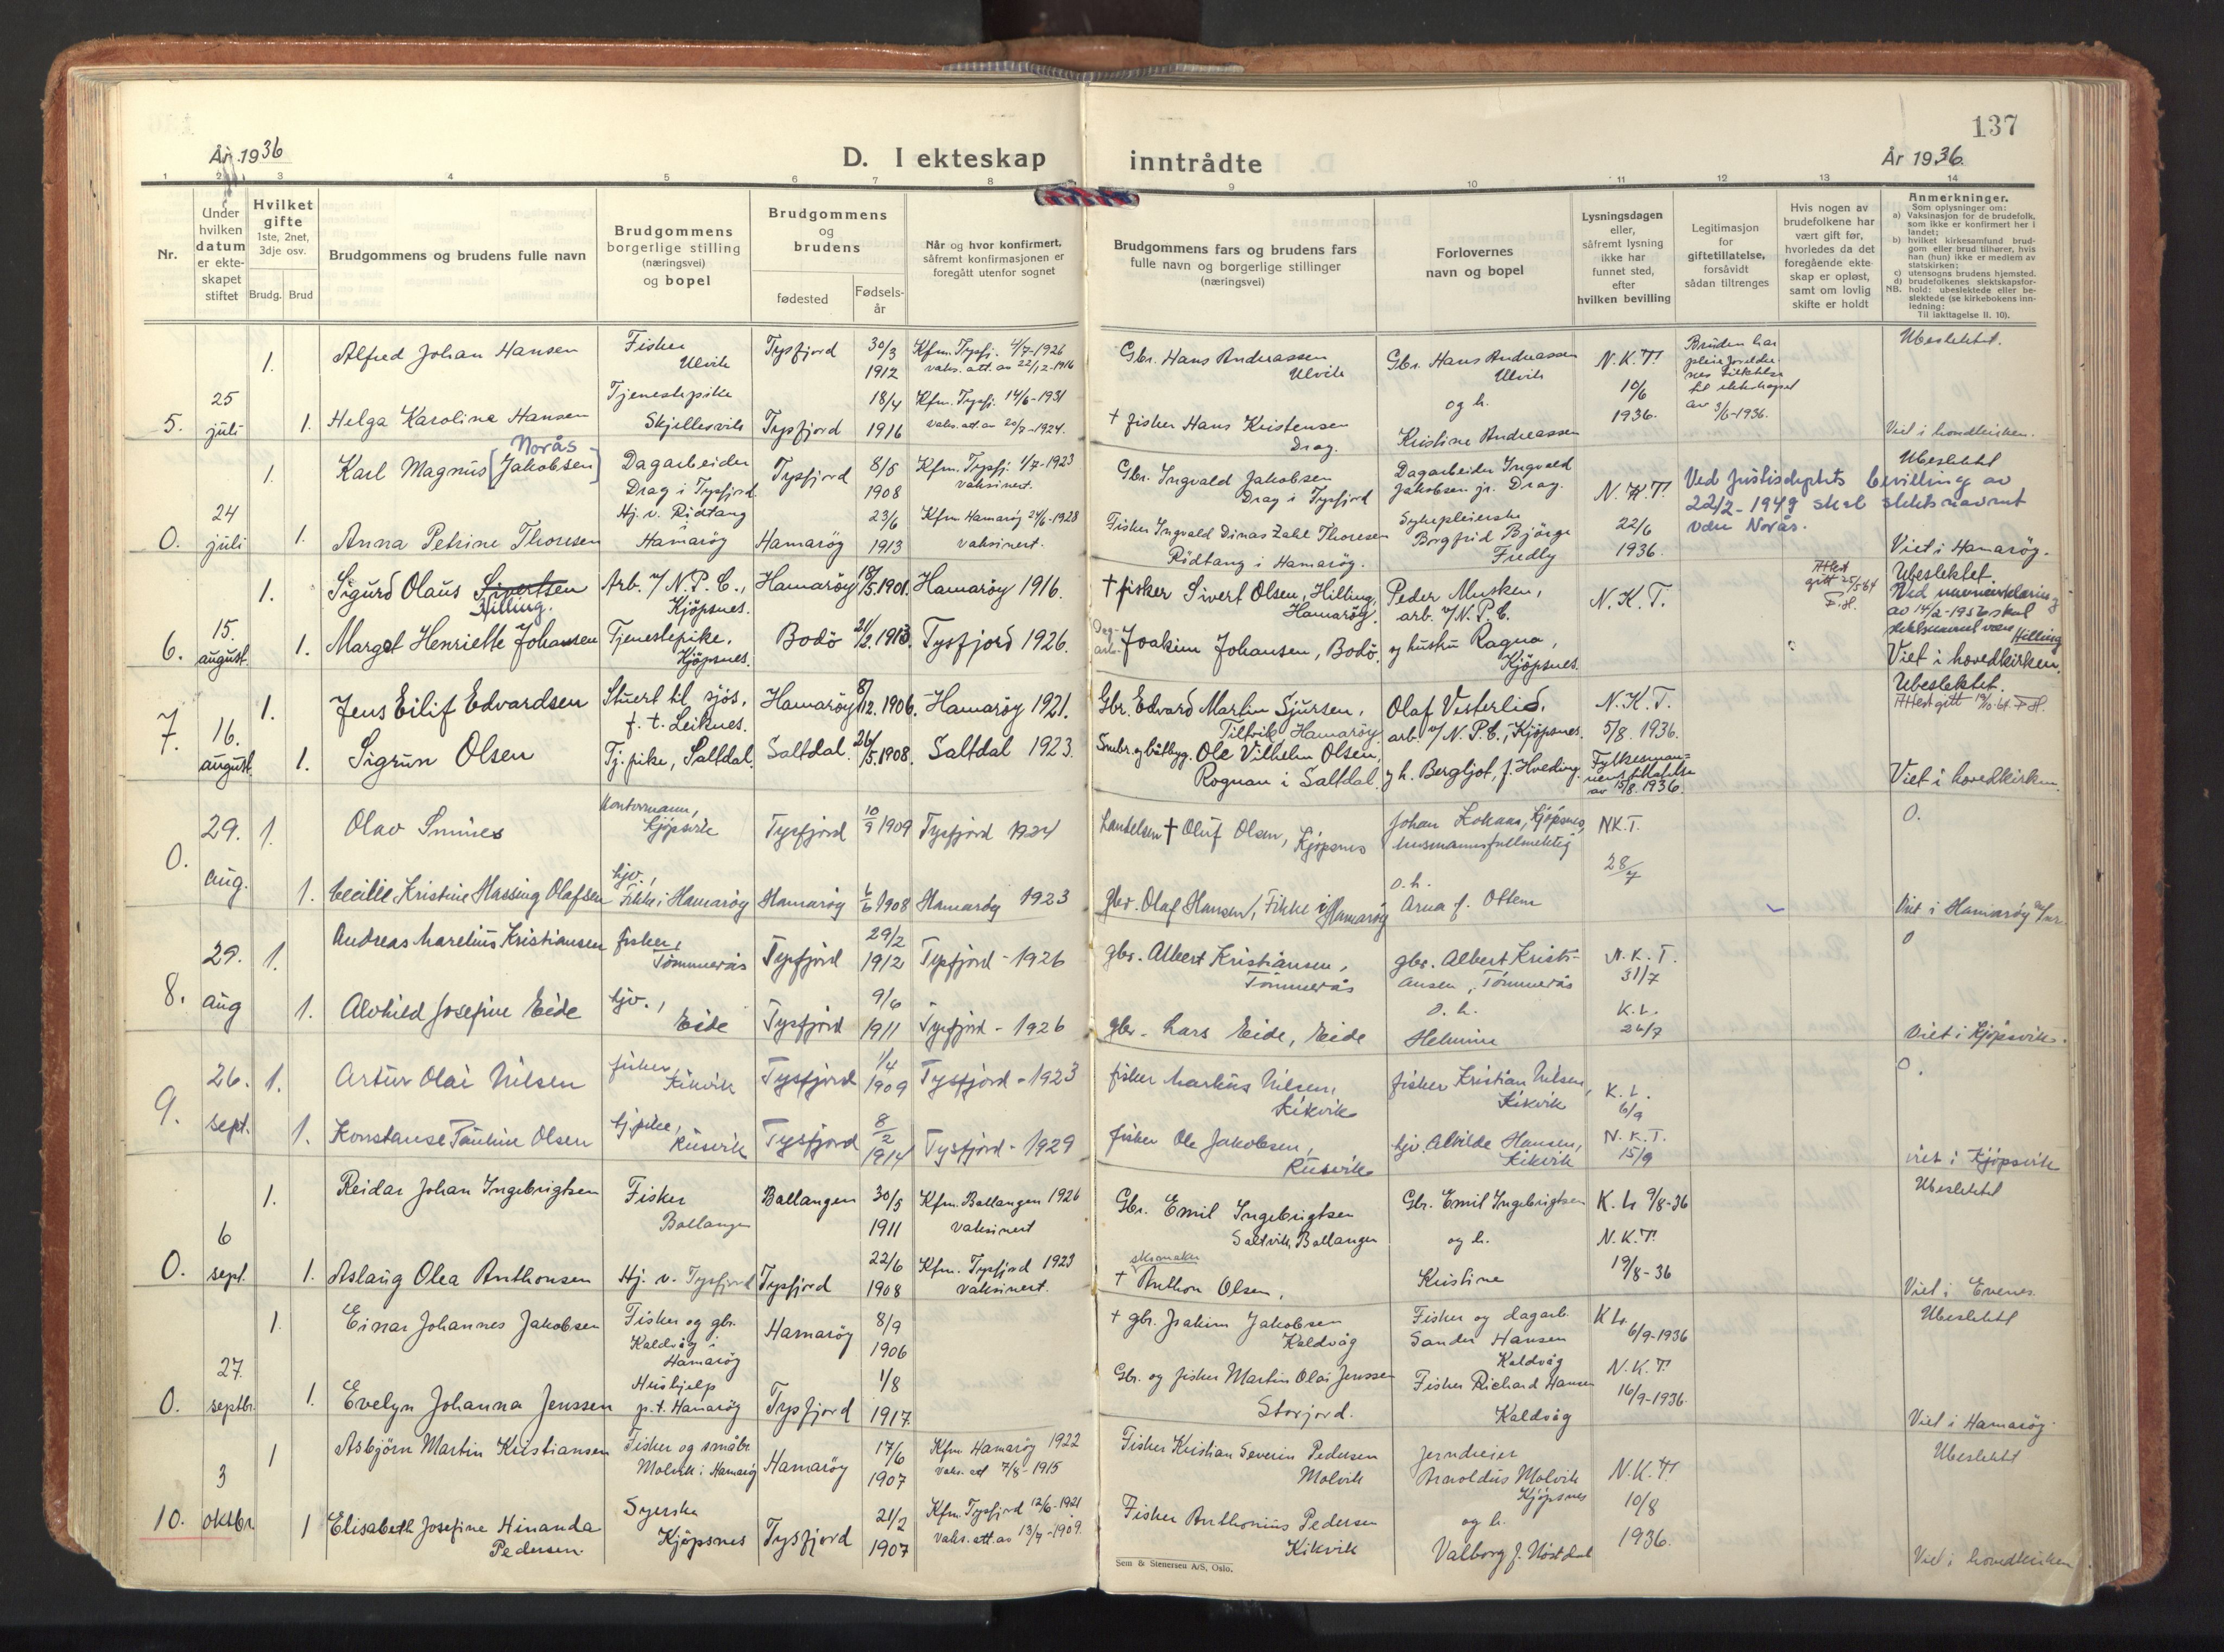 137
År 1936
D. I ekteskap
inntrådte
År 1936.
1 2 3 4 5 6 7 8 9 10 11 12 13 14
Nr.
Under
hvilken
datum
er ekte-
skapet
stiftet
Hvilket
gifte
1ste, 2net,
3dje osv.
Brudg.
Brud
Brudgommens og brudens fulle navn
Brudgommens
borgerlige stilling
(næringsvei)
og bopel
Brudgommens
og
brudens
fødested
Fødsels-
år
Når og hvor konfirmert,
såfremt konfirmasjonen er
foregått utenfor sognet
Brudgommens fars og brudens fars
fulle navn og borgerlige stillinger
(næringsvei)
Forlovernes
navn og bopel
Lysningsdagen
eller,
såfremt lysning
ikke har
funnet sted,
efter
hvilken bevilling
Legitimasjon
for
giftetillatelse,
forsåvidt
sådan tiltrenges
Hvis nogen av
brudefolkene har
vært gift før,
hvorledes da det
foregående ekte-
skap er opløst,
samt om lovlig
skifte er holdt
Anmerkninger.
Som oplysninger om:
a) Vaksinasjon for de brudefolk,
som ikke er konfirmert her i
landet;
b) hvilket kirkesamfund brud-
gom eller brud tilhører, hvis
han (hun) ikke er medlem av
statskirken;
c) utensogns brudens hjemsted.
d) brudefolkenes slektskapsfor-
NB. hold: ubeslektede eller be-
slektede (se kirkebokens inn-
ledning:
Til iakttagelse II. 10).
5.
25
juli
1. Alfred Johan Hansen
Fisker
Ulvik
Tysfjord
30/3
1912
Kfm. Tysfj. 4/7-1926
vaks. att. av 22/12-1916
Gbr. Hans Andreassen
Ulvik
Gbr. Hans Andreassen
Ulvik
og h.
Kristine Andreassen
N.K.T.
10/6
1936.
Bruden har
til ekteskapet
av 3/6-1936.
Ubeslektet.
1. Helga Karoline Hansen
Tjenestepike
Skjellesvik
Tysfjord
18/4
1916
Kfm. Tysfj. 14/6-1931
vaks. att. av 20/7-1924.
† fisker Hans Kristensen
Drag.
Viet i hovedkirken.
0.
24
juli
1. Karl Magnus [Jakobsen]
Norås
Dagarbeider
Drag i Tysfjord
Tysfjord
8/5
1908
Kfm. Tysfj. 1/7-1923
vaksinert.
Gbr. Ingvald Jakobsen
Drag i Tysfjord
Dagarbeider Ingvald
Jakobsen jr. Drag.
Sykepleierske
Borgfrid Bjørge
Fredly
N.K.T.
22/6
1936.
Ved Justisdeptets bevilling av
22/2-1949 skal slektsnavnet
være Norås.
Ubeslektet
1. Anna Petrine Thoresen
Hj. v. Ridtang
Hamarøy
Hamarøy
23/6
1913
Kfm. Hamarøy 24/6-1928
vaksinert.
Fisker Ingvald Dinas Zahl Thoresen
Ridtang i Hamarøy.
Viet i Hamarøy.
6.
15.
august.
1. Sigurd Olaus Sivertsen
Hilling.
Arb. v/ N.P.C.,
Kjöpsnes.
Hamaröy
18/5.1901.
Hamaröy 1916.
† fisker Sivert Olsen, Hilling,
Hamaröy.
Peder Musken,
arb. v/N.P.C.
og hustru Ragna,
Kjöpsnes.
N.K.T.
Attest
gitt 25/5 64
F.H.
Ubeslektet.
av 14/2-1956 skal
slektsnavnet være Hilling
1. Margot Henriette Johansen
Tjenestepike.
Kjöpsnes.
Bodö
21/2.1913.
Tysfjord 1926.
Dag-
arb. Joakim Johansen, Bodö.
Viet i hovedkirken.
7.
16.
august.
1. Jens Eilif Edvardsen
Stuert til sjös,
f. t. Leiknes.
Hamaröy
8/12.1906.
Hamaröy 1921.
Gbr. Edvard Martin Sjursen,
Tilvik, Hamaröy.
Olaf Vesterlid,
arb. v/ N.P.C., Kjöpsnes.
og h. Bergljot, f. Hveding.
N.K.T.
5/8. 1936.
Fylkesman-
nens tillatelse
av 15/8. 1936.
Ubeslektet.
Attest gitt 19/10-64. F.H.
1. Sigrun Olsen
Tj.pike, Saltdal.
Saltdal.
26/5.1908.
Saltdal 1923.
Smbr. og båtbyg. Ole Vilhelm Olsen,
Rognan i Saltdal.
Viet i hovedkirken.
0.
29.
aug.
1. Olav Smines
Kontormann,
Kjøpsvik
Tysfjord
10/9 1909
Tysfjord 1924
† Oluf Olsen, Kjøpsnes
Johan , Kjøpsnes,
o.h.
Arna f. Ottem
NK.T.
28/7
0.
1. Cecilie Kristine Hassing Olafsen
hjv.,
Fikke i Hamarøy
Hamarøy
6/6 1908
Hamarøy 1923
gbr. Olaf Hansen, Fikke i Hamarøy
Viet i Hamarøy
8.
29.
aug
1. Andreas Marelius Kristiansen
fisker,
Tømmerås
Tysfjord
29/2
1912
Tysfjord - 1926
gbr. Albert Kristiansen,
Tømmerås
gbr. Albert Kristi-
ansen, Tømmerås
o. h.
Helmine
N.K.T.
31/7
K.L.
26/7
0
1. Alvhild Josefine Eide
hjv.,
Eide
Tysfjord
9/6
1911
Tysfjord - 1926
gbr. Lars Eide, Eide
Viet i Kjøpsvik.
9.
26.
sept.
1. Artur Olai Nilsen
fisker,
Kikvik
Tysfjord
1/4
1909
Tysfjord - 1923
fisker Markus Nilsen,
Kikvik
fisker Kristian Nilsen,
Kikvik
hjv. Alvilde Hansen,
Kikvik
K.L.
6/9
N.K.T.
15/9
0.
1. Konstanse Pauline Olsen
tj.pike,
Rusvik
Tysfjord
8/2
1914
Tysfjord - 1929
fisker Ole Jakobsen,
Rusvik
viet i Kjøpsvik
0.
6
sept.
1. Reidar Johan Ingebrigtsen
Fisker
Ballangen
Ballangen
30/5
1911
Kfm. Ballangen 1926
vaksinert
Gbr. Emil Ingebrigtsen
Saltvik, Ballangen
Gbr. Emil Ingebrigtsen
og h.
Kristine
K.L. 9/8-36
N.K.T.
19/8-36
Ubeslektet
1. Aslaug Olea Anthonsen
Hj. v. Tysfjord
Tysfjord
22/6
1908
Kfm. Tysfjord 1923
vaksinert.
skomaker
† Anthon Olsen,
Viet i Evenes.
0.
27.
septbr.
1. Einar Johannes Jakobsen
Fisker og gbr.
Kaldvåg i
Hamarøy
Hamarøy
8/9
1906
† gbr. Joakim Jakobsen
Kaldvåg
Fisker og dagarb.
Sander Hansen
Kaldvåg
Fisker Richard Hansen
Kaldvåg
K.L.
6/9-1936
N.K.T.
16/9-1936.
Ubeslektet
1. Evelyn Johanna Jenssen
Hushjelp
p.t. Hamarøy
Tysfjord
1/8
1917.
Gbr. og fisker Martin Olai Jenssen
Storjord.
Viet i Hamarøy.
10.
3
oktbr.
1 Asbjörn Martin Kristiansen
Fisker og småbr.
Molvik i Hamarøy
Hamarøy
17/6
1907
Kfm. Hamarøy 1922
vaks. att 7/8-1915
Fisker Kristian Severin Pedersen
Molvik
Jerndreier
Haroldus Molvik
Kjöpsnes
og h.
Valborg f. Nöstdal
N.K.T.
10/8
1936.
Ubeslektet
1 Elisabeth Josefine Hinanda
Pedersen.
Syerske
Kjöpsnes
Tysfjord
21/2
1907
Kfm. Tysfjord 12/6-1921
vaks. att. av 13/7-1909.
Fisker Anthonius Pedersen
Kikvik
Viet i hovedkirken
Sem & Stenersen A/S, Oslo.